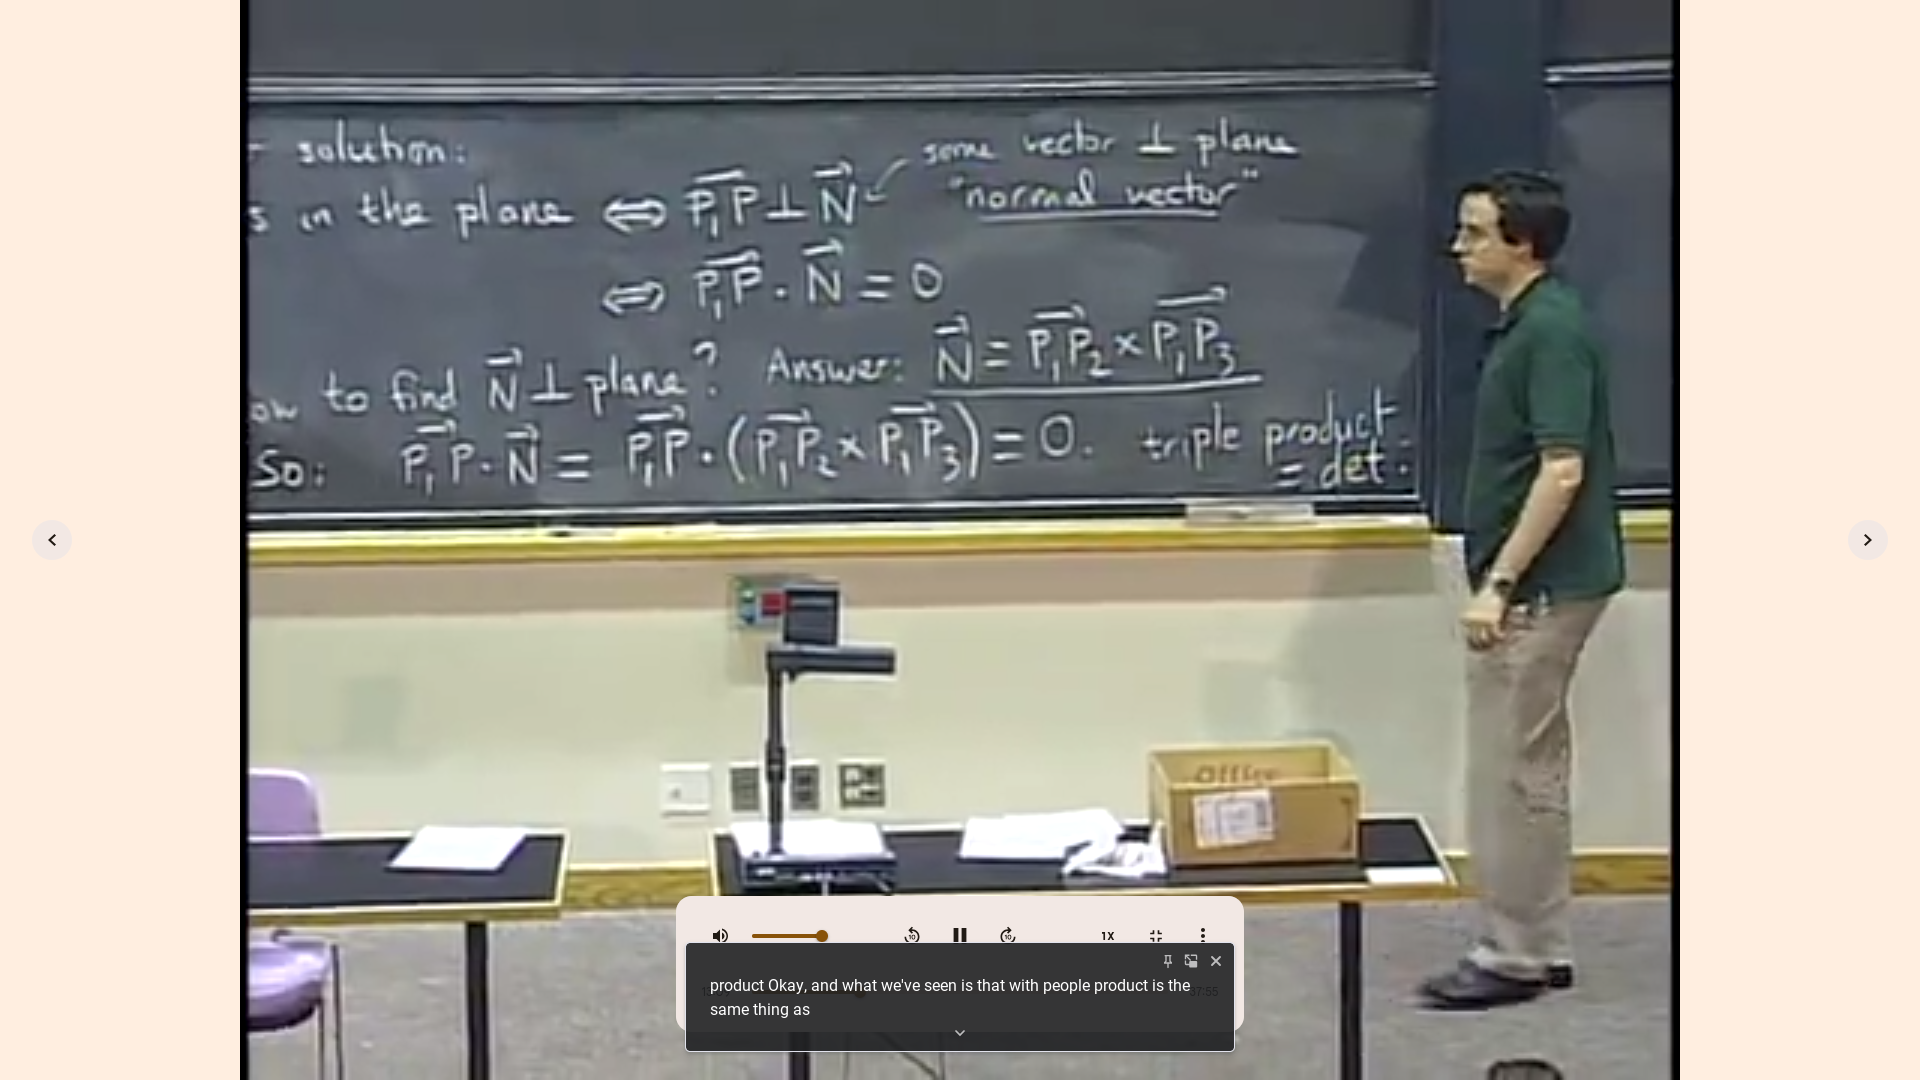 solution:
some vector ⊥ plane
s in the plane ⇔ P₁P ⊥ N
"normal vector"
⇔ P₁P · N = 0
ow to find N ⊥ plane? Answer: N = P₁P₂ × P₁P₃
So: P₁P · N = P₁P · (P₁P₂ × P₁P₃) = 0. triple product
= det.
Office
10
10
1X
product Okay, and what we've seen is that with people product is the
same thing as
37:55